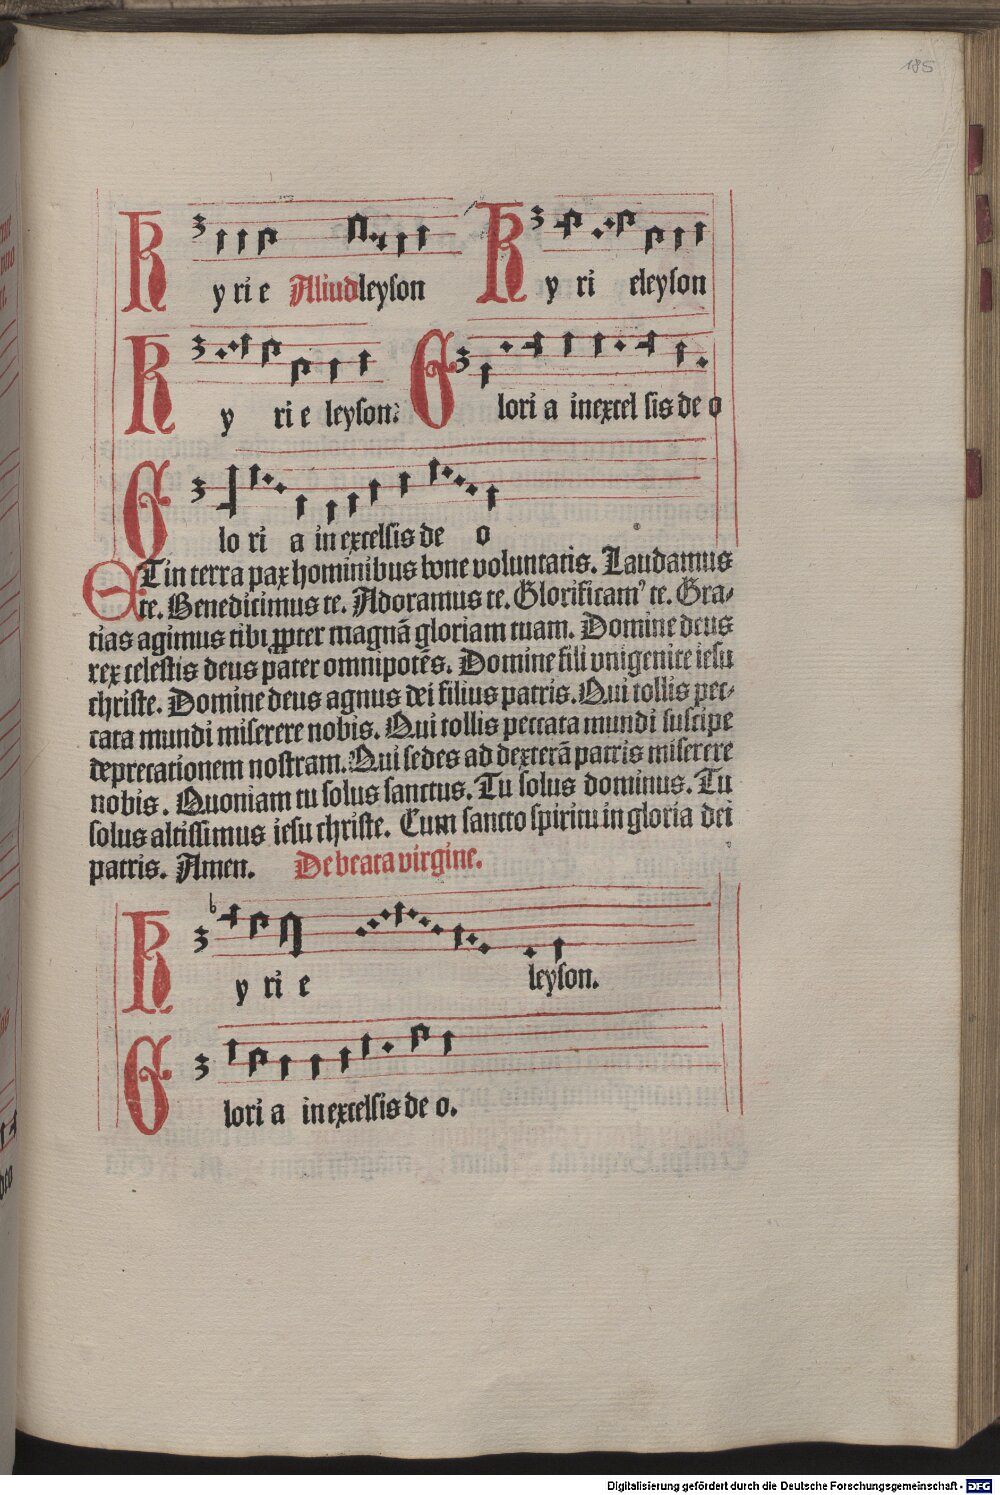 185
K y ri e Aliud leyson K y ri eleyson
K y ri e leyson. G lori a in excel sis de o
G lo ri a in excelsis de o
ET in terra pax hominibus bone voluntatis. Laudamus
te. Benedicimus te. Adoramus te. Glorificamꝰ te. Gra⸗
tias agimus tibi ꝓpter magnā gloriam tuam. Domine deus
rex celestis deus pater omnipotēs. Domine fili vnigenite iesu
christe. Domine deus agnus dei filius patris. Qui tollis pec⸗
cata mundi miserere nobis. Qui tollis peccata mundi suscipe
deprecationem nostram. Qui sedes ad dexterā patris miserere
nobis. Quoniam tu solus sanctus. Tu solus dominus. Tu
solus altissimus iesu christe. Cum sancto spiritu in gloria dei
patris. Amen. De beata virgine.
K y ri e leyson.
G lori a in excelsis de o.
Digitalisierung gefördert durch die Deutsche Forschungsgemeinschaft - DFG